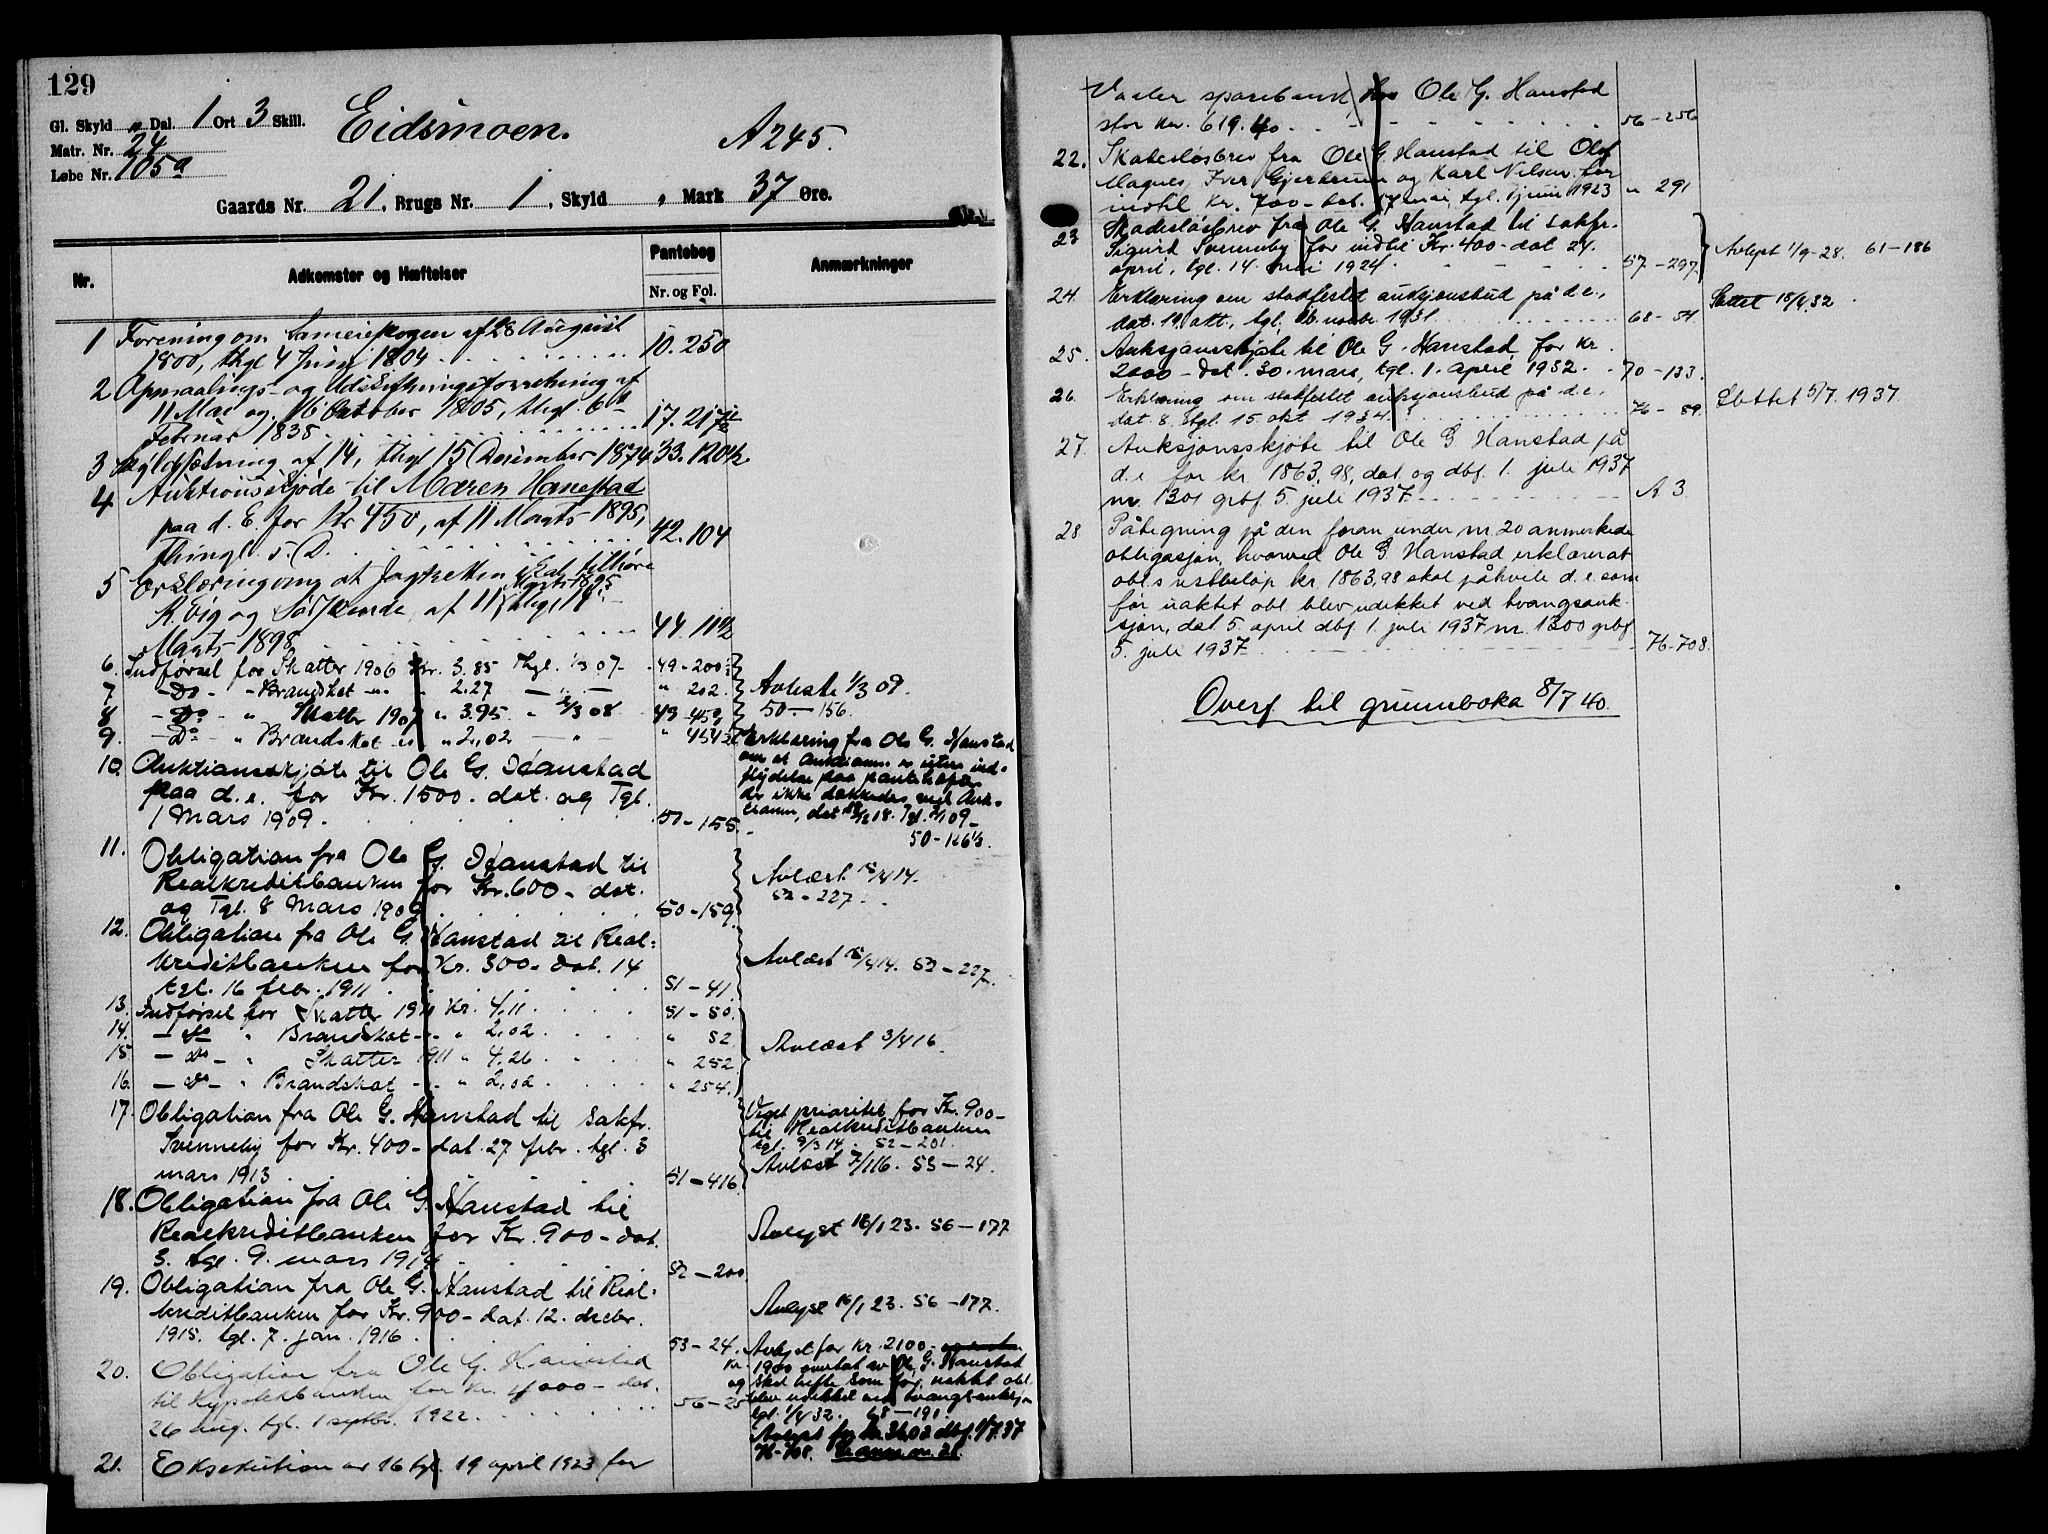 129
Gl. Skyld " Dal. 1 Ort 3 Skill.
Matr. Nr. 24
Løbe Nr. 105a
Eidsmoen.
A 245.
Gaards Nr. 21, Brugs Nr. 1, Skyld " Mark 37 Øre.
Nr.
Adkomster og Hæftelser
Pantebog
Nr. og Fol.
Anmærkninger
1 Forening om Sameieskogen af 28 August
1800, thgl 4 Juni 1804 10. 250
2 Opmaalings- og Udskiftningsforretning af
11 Mai og 16 October 1805, thgl. 6te
Februar 1835 17. 217
3 Skyldsætning af 14, thgl 15 December 1874 33. 120½
4 Auktionsskjøde til Maren Hanestad
paa d. E. for Kr 450, af 11 Marts 1895,
thingl. s. D. 42. 104
5 Erklæring om at Jagtretten skal tilhøre
K. Eig og af 11 Marts 1895 thgl 18
Marts 1898 44. 11½
6. Indførsel for Skatter 1906 Kr. 3.85 Thgl. 1/3 07 - 49-200
7 - Do - " Brandskat - " - " 2.27 — " — " 202.
8 - Do - " Skatter 1907 " 3.95. " 2/3 08 49-453
9. - Do " Brandskat - " " 2,02 — " — " 454
Avleste 1/3 09.
50 — 156.
10. Auktionsskjøte til Ole G. Hanstad
paa d. e. for Kr. 1500. dat. og Tgl.
1 Mars 1909. 50-155.
Erklæring fra Ole G. Hanstad
om at Auktionen er uten ind-
flydelse paa pantehæftelser
der ikke dækkedes ved Auk-
tionen, dat 18. Tgl. 09-
50-166½.
11. Obligation fra Ole G. Hanstad til
Realkreditbanken for Kr. 600 - dat.
og Tgl. 8 Mars 1909 50-159
Avlæst 15/4 14.
52-227.
12. Obligation fra Ole G. Hanstad til Real-
kreditbanken for Kr. 300 - dat. 14
tgl. 16 febr. 1911 51-41.
Avlæst 15/4 14. 52-227.
13. Indførsel for Skatter 1910 Kr. 4,11 51-50.
14. — do " Brandskat - " - " 2,02 " 52.
15 — do — " Skatter 1911 " 4,26 " 252
16. — do - " Brandskat - " - " 2,02 " 254.
Avlæst 3/4 16.
17. Obligation fra Ole G. Hanstad til Sakfr.
Svenneby for Kr. 400 - dat. 27 febr. tgl. 3
mars 1913 51-416
Veget prioritet for Kr. 900 -
til Realkreditbanken
tgl. 9/3 14. 52-201.
Avlæst 7/1 16. 53-24.
18. Obligation fra Ole G. Hanstad til
Realkreditbanken for Kr. 900 - dat.
3. tgl. 9. mars 1914 52-200
Avlyst 16/1 23. 56-177
19. Obligation fra Ole G. Hanstad til Real-
kreditbanken for Kr. 900 - dat. 12. decbr.
1915. tgl. 7. jan. 1916 53-24.
Avlyst 16/1 23. 56-177.
20. Obligation fra Ole G. Hanstad
til hypotekbanken for Kr. 4000 - dat.
26 aug. tgl. 1 septbr. 1922 56-25
Avlyst for kr. 2100 -
kr. 1900 overtat av Ole G. Hanstad
og skal hefte som før uaktet obl.
blev udekket ved tvangsauksjon
tgl. 1/4 32. 68-191.
Avlyst for kr. 36,02 dbf. 1/7. 37
76-708. Se anm. nr. 28
21. Eksekution av 16 tgl. 19 april 1923 for
Vaaler sparebank hos Ole G. Hanstad
stor kr. 619.40 56-256
22. Skadesløsbrev fra Ole G. Hanstad til Olaf
Magnes, Iver Gjerdrum og Karl Nilsen for
indtil Kr. 700 - dat. 17 mai, tgl. 1 juni 1923 " 291
23 Skadesløsbrev fra Ole G. Hanstad til sakfr.
Sigurd Svenneby for indtil Kr. 400 - dat 24.
april, tgl. 14. mai 1924. 57-297
Avlyst 1/9-28. 61-186
24. Erklæring om stadfestet auksjonsbud på d.e.,
dat. 19. okt., tgl. 16. novbr 1931 68-54
Slettet 18/4 32.
25. Auksjonsskjøte til Ole G. Hanstad for kr.
2000 - dat. 30. mars, tgl. 1. april 1932. 70-133.
26. Erklæring om stadfestet auksjonsbud på d.e.
dat. 8. tgl. 15. okt 1934. 76-89.
Slettet 5/7. 1937.
27. Auksjonsskjøte til Ole G. Hanstad på
d.e. for kr. 1863,98, dat. og dbf. 1. juli 1937
nr. 1301 grbf. 5. juli 1937 A 3
28. Påtegning på den foran under nr 20 anmerkede
obligasjon, hvorved Ole G. Hanstad erklærer at
obl.s restbeløp kr. 1863,98 skal påhvile d.e. som
før uaktet obl. blev udekket ved tvangsauk-
sjon, dat 5. april dbf. 1. juli 1937 nr. 1300 grbf
5. juli 1937 76-708.
Overf. til grunnboka 8/7 40.